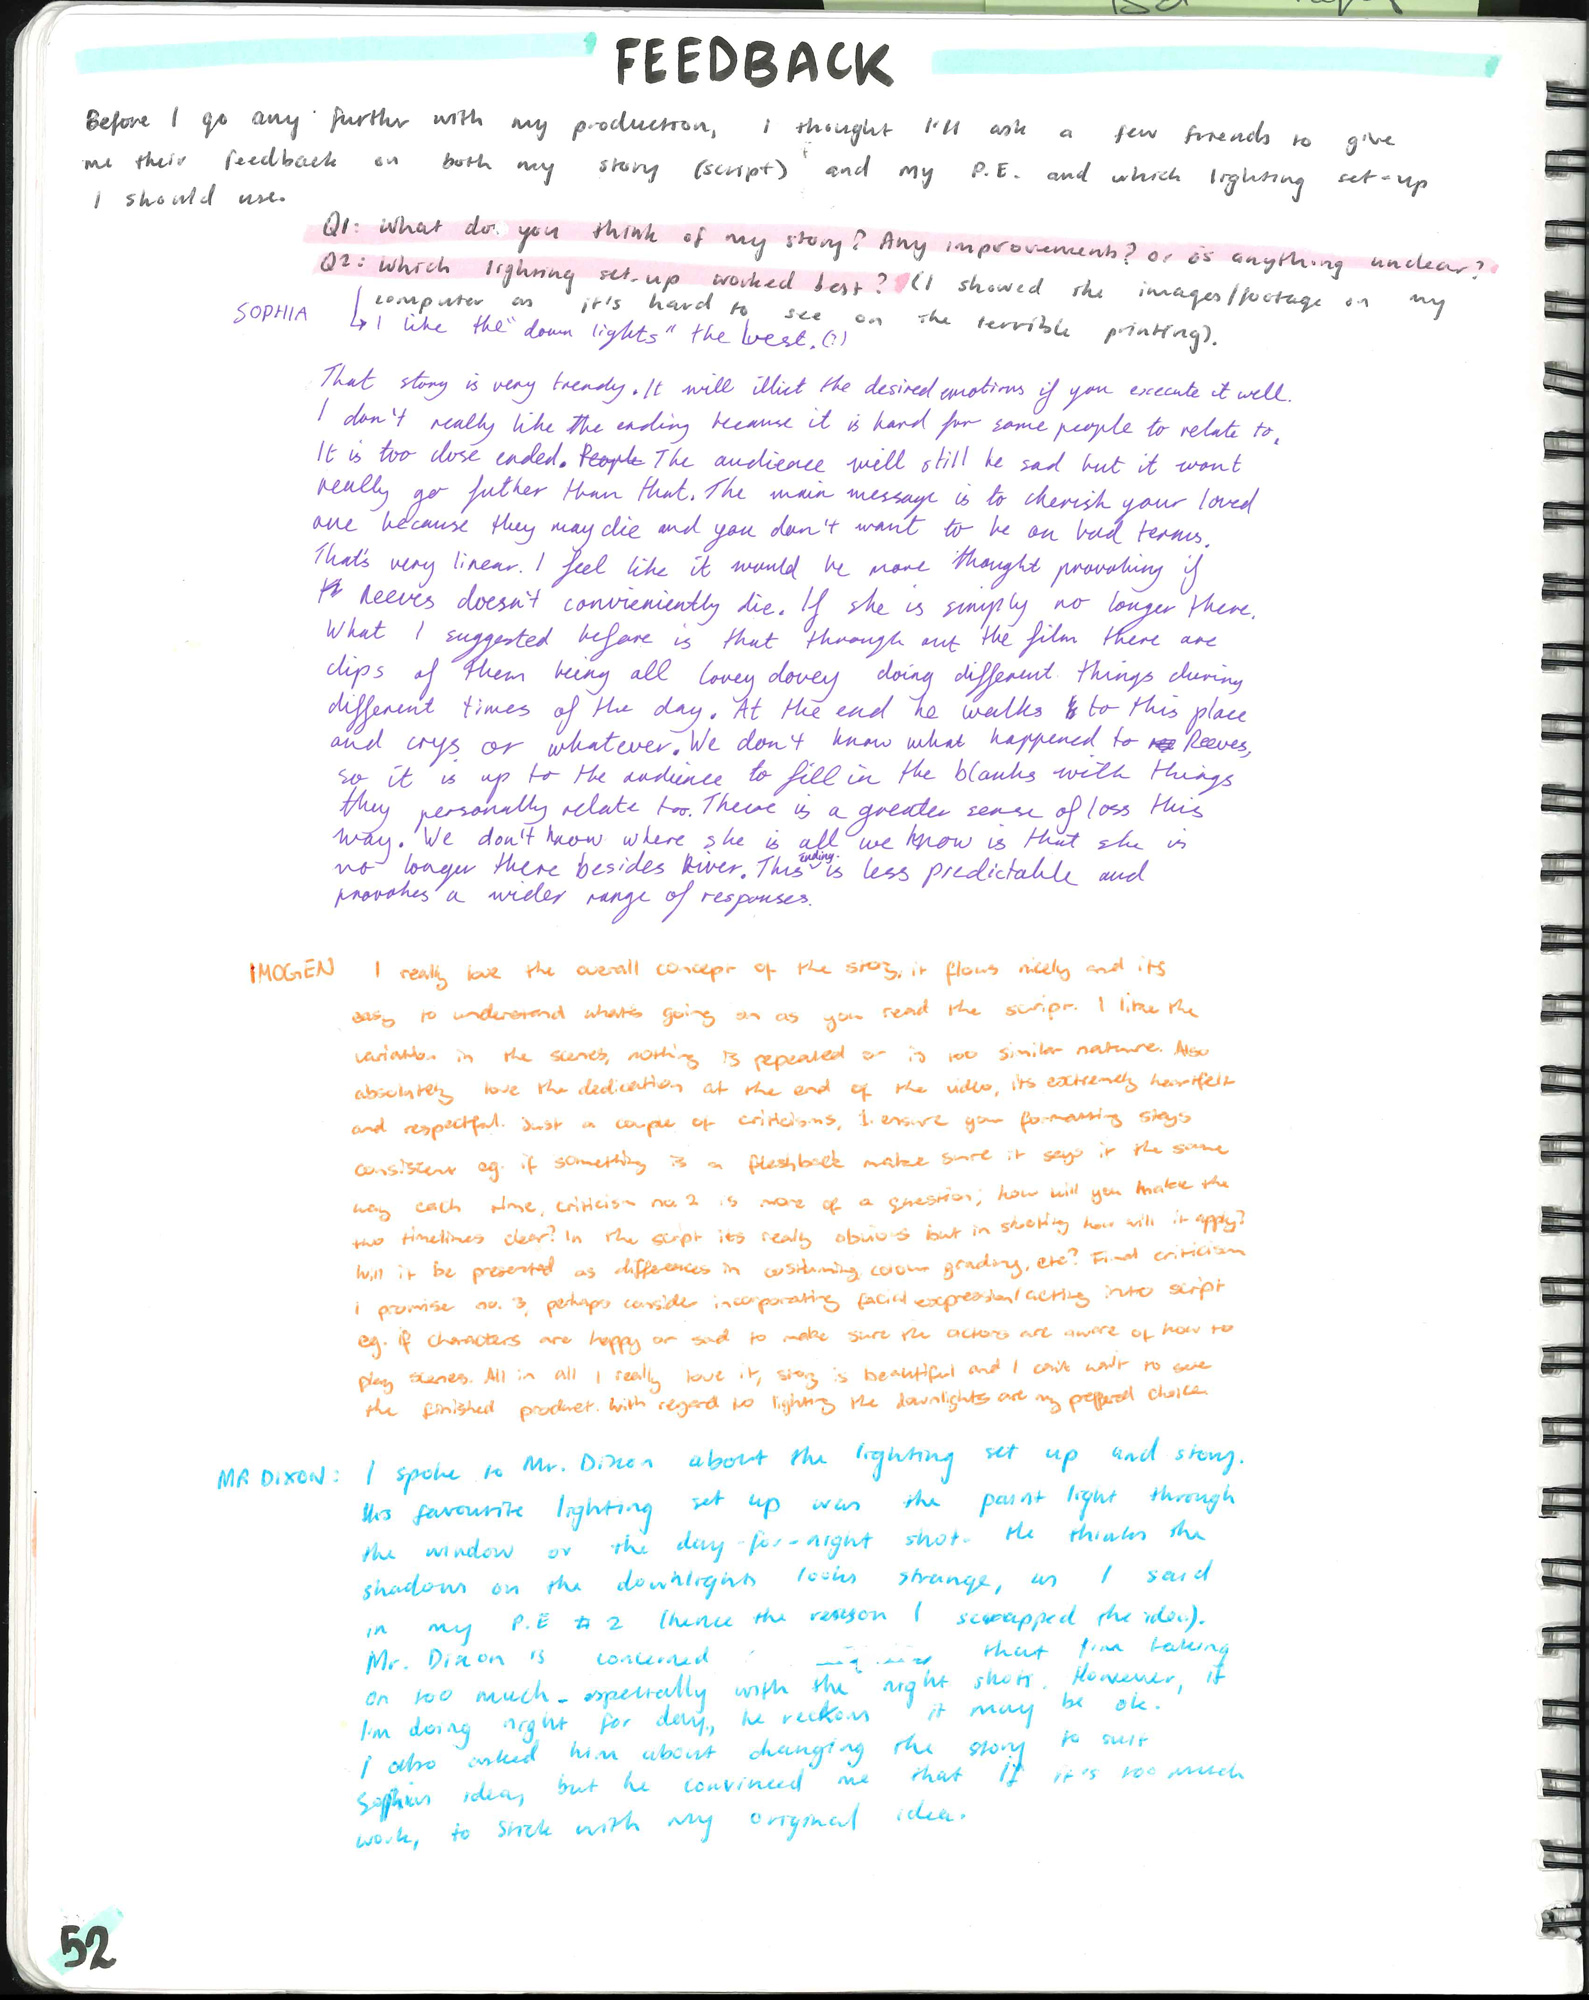 FEEDBACK
Before I go any further with my production, I thought I'll ask a few friends to give
me their feedback on both my story (script) and my P.E. and which lighting set-up
I should use.
Q1: What do you think of my story? Any improvements? or is anything unclear?
Q2: Which lighting set-up worked best? (I showed the images/footage on my
computer as it's hard to see on the terrible printing).
SOPHIA
↳ I like the "down lights" the best. (2)
That story is very trendy. It will illict the desired emotions if you execute it well.
I don't really like the ending because it is hard for some people to relate to.
It is too close ended. People The audience will still be sad but it wont
really go futher than that. The main message is to cherish your loved
one because they may die and you don't want to be on bad terms.
That's very linear. I feel like it would be more thought provoking if
Reeves doesn't convieniently die. If she is simply no longer there.
What I suggested before is that through out the film there are
clips of them being all lovey dovey doing different things during
different times of the day. At the end he walks to this place
and crys or whatever. We don't know what happened to Reeves,
so it is up to the audience to fill in the blanks with things
they personally relate too. There is a greater sense of loss this
way. We don't know where she is all we know is that she is
no longer there besides River. This ending is less predictable and
provokes a wider range of responses.
IMOGEN I really love the overall concept of the story, it flows nicely and its
easy to understand what's going on as you read the script. I like the
variation in the scenes, nothing is repeated or is too similar nature. Also
absolutely love the dedication at the end of the video, its extremely heartfelt
and respectful. Just a couple of criticisms, 1. ensure your formatting stays
consistent eg. if something is a flashback make sure it says it the same
way each time, criticism no. 2 is more of a question; how will you make the
two timelines clear? In the script its really obvious but in shooting how will it apply?
Will it be presented as differences in costuming, colour grading, etc? Final criticism
I promise no. 3, perhaps consider incorporating facial expression/acting into script
eg. if characters are happy or sad to make sure the actors are aware of how to
play scenes. All in all I really love it, story is beautiful and I can't wait to see
the finished product. With regard to lighting the downlights are my preffered choice
MR DIXON: I spoke to Mr. Dixon about the lighting set up and story.
His favourite lighting set up was the paint light through
the window or the day-for-night shot. He thinks the
shadows on the downlights looks strange, as I said
in my P.E #2 (hence the reason I scrapped the idea).
Mr. Dixon is concerned that I'm taking
on too much - especially with the night shots. However, if
I'm doing night for day, he reckons it may be ok.
I also asked him about changing the story to suit
Sophias idea, but he convinced me that if it's too much
work, to stick with my original idea.
52